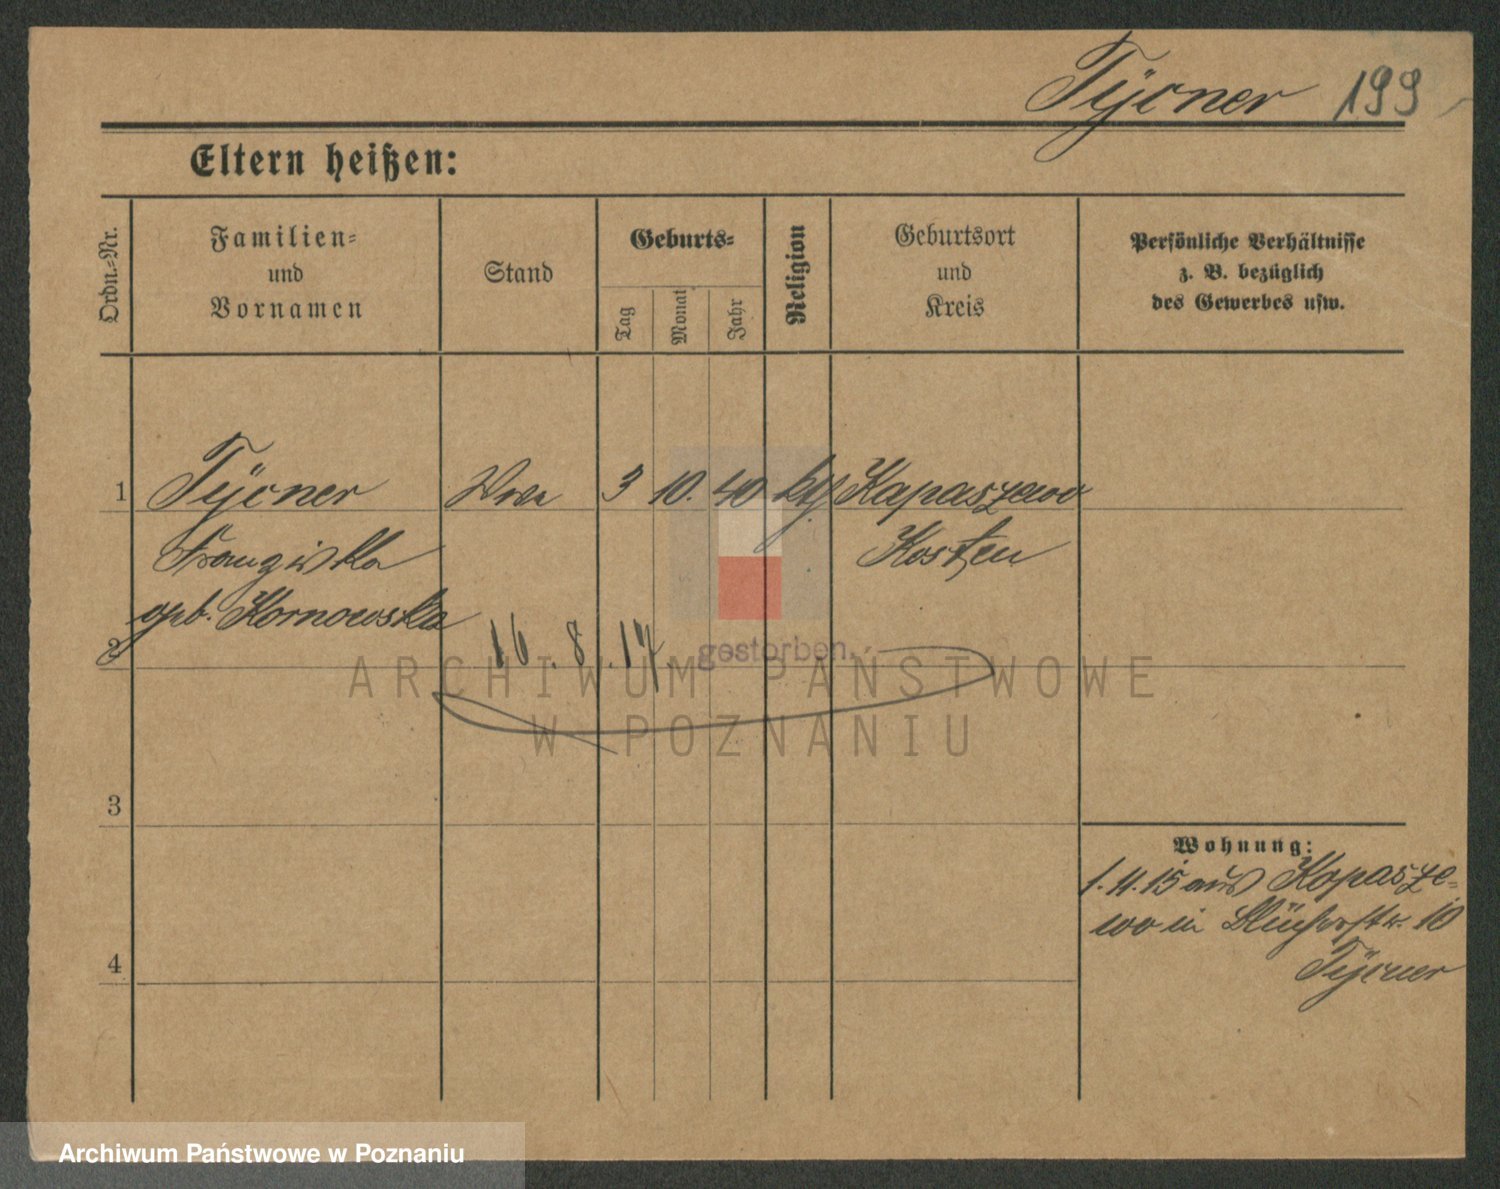 Tÿcner 199
Eltern heißen:
Ordn.-Nr.
Familien-
und
Vornamen
Stand
Geburts-
Tag
Monat
Jahr
Religion
Geburtsort
und
Kreis
Persönliche Verhältnisse
z. B. bezüglich
des Gewerbes usw.
1 Tÿcner Wwe 3 10. 40 ktg Kapaszewo
Franziska Kosten
geb. Kornowska
2 16. 8. 17. gestorben.
ARCHIWUM PAŃSTWOWE
W POZNANIU
3
Wohnung:
1. 4. 15 aus Kopasze-
wo in Blücherstr. 10
4 Tÿcner
Archiwum Państwowe w Poznaniu